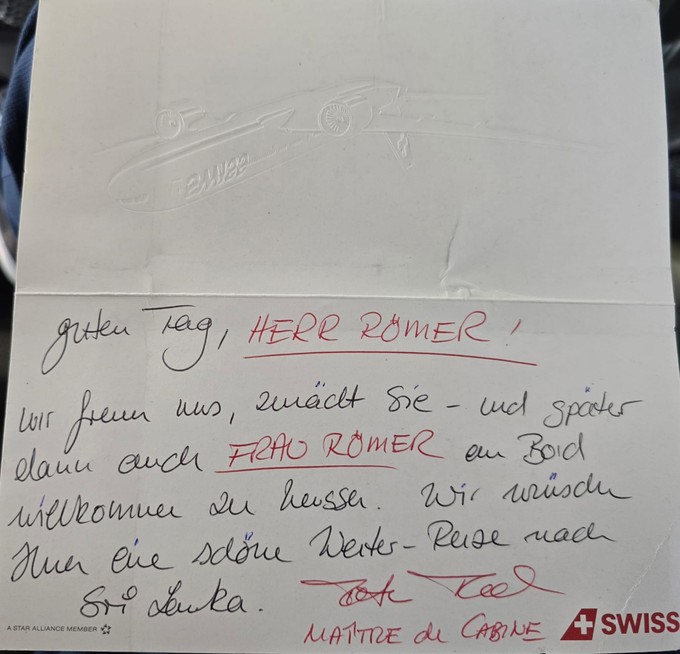 guten Tag, HERR RÖMER!
wir freuen uns, zunächst Sie – und später
dann auch FRAU RÖMER an Bord
willkommen zu heissen. Wir wünschen
Ihnen eine schöne Weiter-Reise nach
Sri Lanka.
MAÎTRE de CABINE
A STAR ALLIANCE MEMBER
SWISS